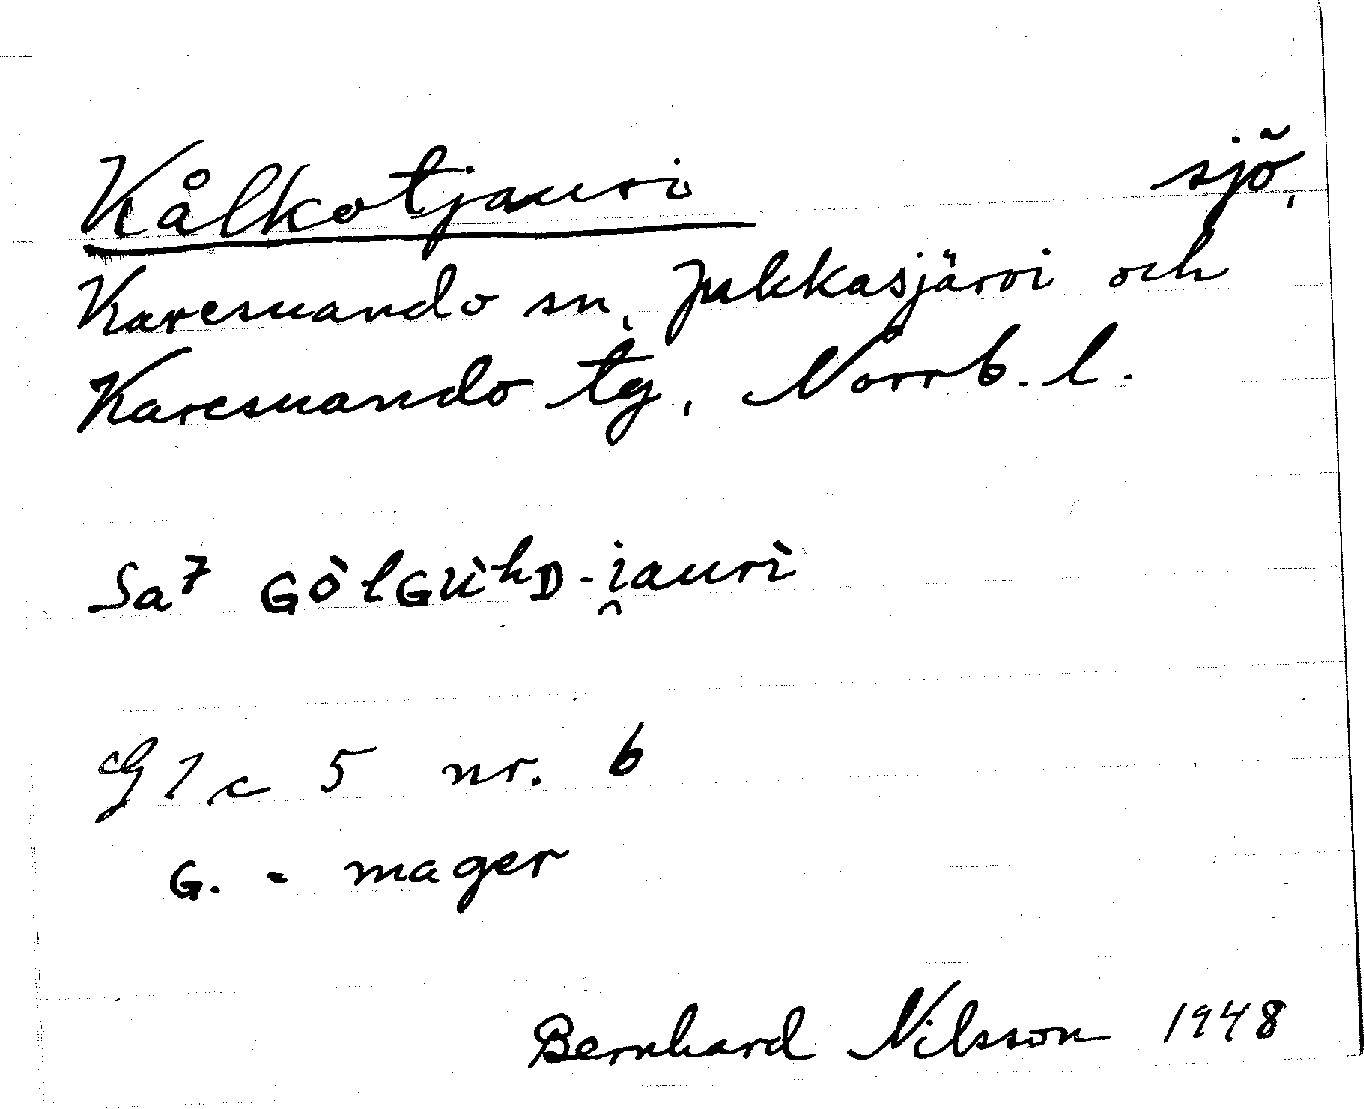 Kålkotjauri sjö,
Karesuando sn, Jukkasjärvi och
Karesuando tg, Norrb. l.
Sa7 GòlGùʰD-i̯aurì
G 1 c 5 nr. 6
G. = mager
Bernhard Nilsson 1948